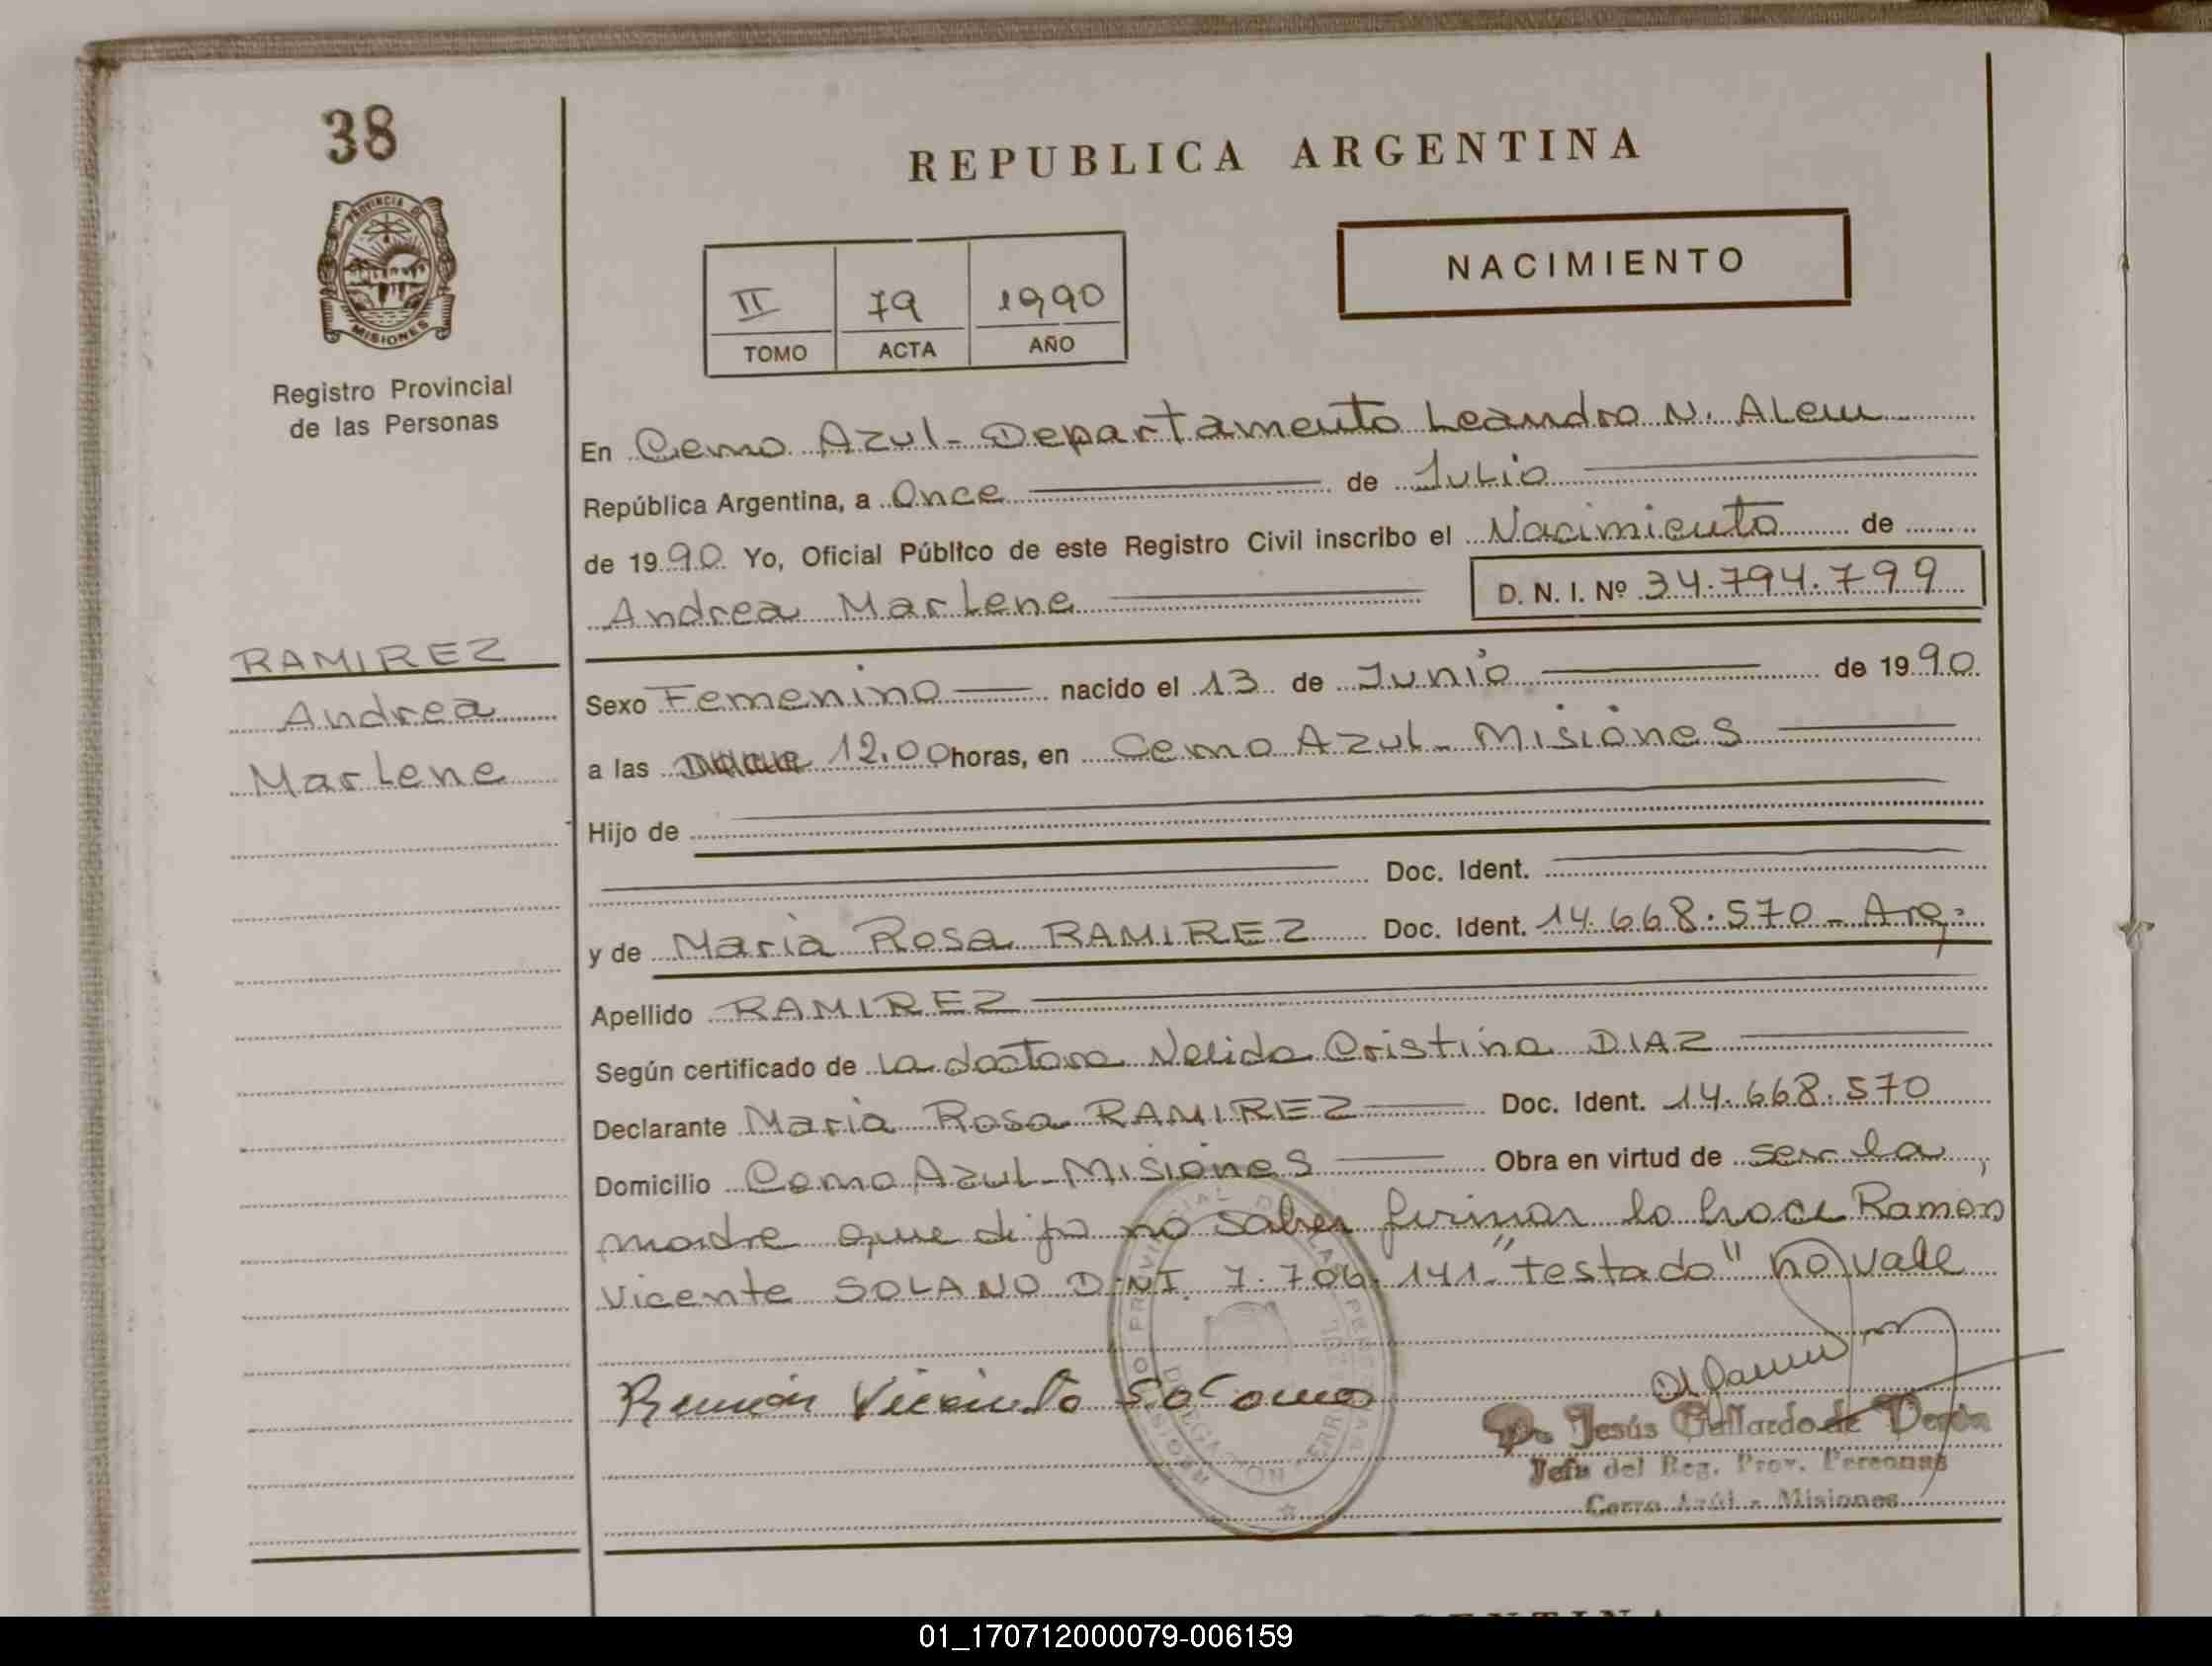 38
PROVINCIA DE
MISIONES
Registro Provincial
de las Personas
REPUBLICA ARGENTINA
NACIMIENTO
II 79 1990
TOMO ACTA AÑO
En Cerro Azul - Departamento Leandro N. Alem
República Argentina, a Once de Julio
de 1990 Yo, Oficial Público de este Registro Civil inscribo el Nacimiento de
Andrea Marlene D. N. I. Nº 34.794.799
RAMIREZ
Andrea
Marlene
Sexo Femenino nacido el 13 de Junio de 1990
a las 12.00 horas, en Cerro Azul - Misiones
Hijo de
Doc. Ident.
y de Maria Rosa RAMIREZ Doc. Ident. 14.668.570 - Arg.
Apellido RAMIREZ
Según certificado de la doctora Nelida Cristina DIAZ
Declarante Maria Rosa RAMIREZ Doc. Ident. 14.668.570
Domicilio Cerro Azul - Misiones Obra en virtud de ser la
madre que dijo no saber firmar lo hace Ramon
Vicente SOLANO D.N.I. 7.706.141 - "testado" no vale
Ramón Vicente Solano
Jesús Gallardo de Derón
Jefa del Reg. Prov. Personas
Cerro Azúl - Misiones
01_170712000079-006159